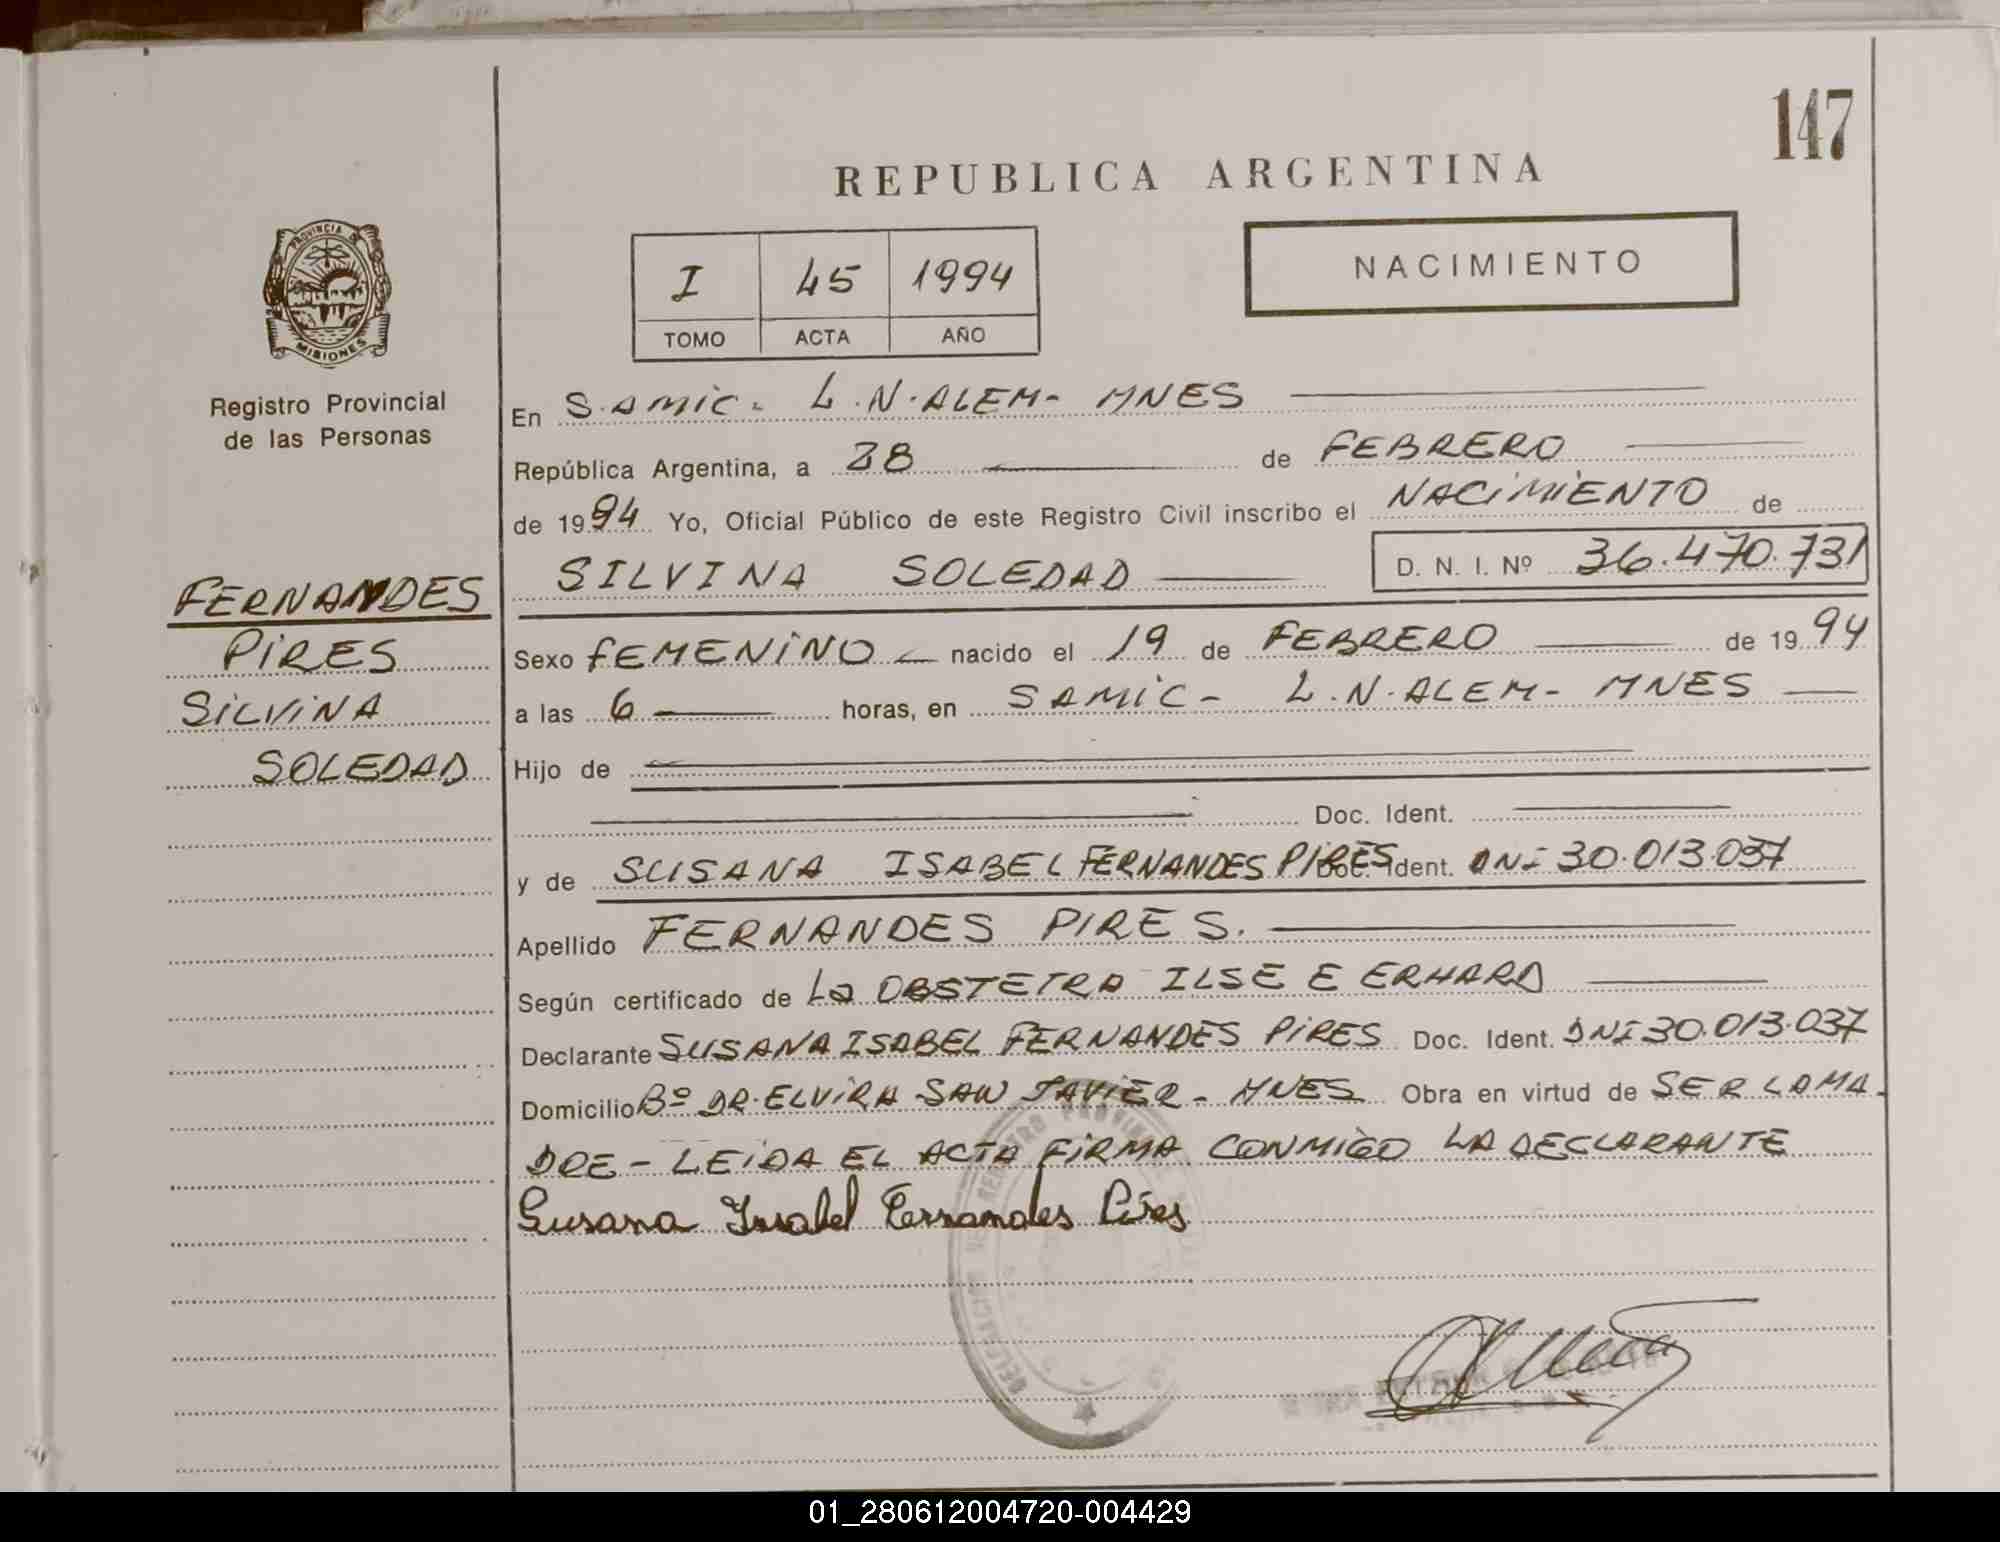 147
REPUBLICA ARGENTINA
PROVINCIA DE
MISIONES
Registro Provincial
de las Personas
I 45 1994
TOMO ACTA AÑO
NACIMIENTO
FERNANDES
PIRES
SILVINA
SOLEDAD
En S.AMIC. L.N.ALEM- MNES
República Argentina, a 28 de FEBRERO
de 1994 Yo, Oficial Público de este Registro Civil inscribo el NACIMIENTO de
SILVINA SOLEDAD D. N. I. Nº 36.470.731
Sexo FEMENINO nacido el 19 de FEBRERO de 1994
a las 6 horas, en SAMIC- L.N.ALEM- MNES
Hijo de
Doc. Ident.
y de SUSANA ISABEL FERNANDES PIRES Doc. Ident. DNI 30.013.037
Apellido FERNANDES PIRES.
Según certificado de La OBSTETRA ILSE E ERHARD
Declarante SUSANA ISABEL FERNANDES PIRES Doc. Ident. DNI 30.013.037
Domicilio Bº DR. ELVIRA SAN JAVIER- MNES Obra en virtud de SER LA MA-
DRE - LEIDA EL ACTA FIRMA CONMIGO LA DECLARANTE
Susana Isabel Fernandes Pires
01_280612004720-004429